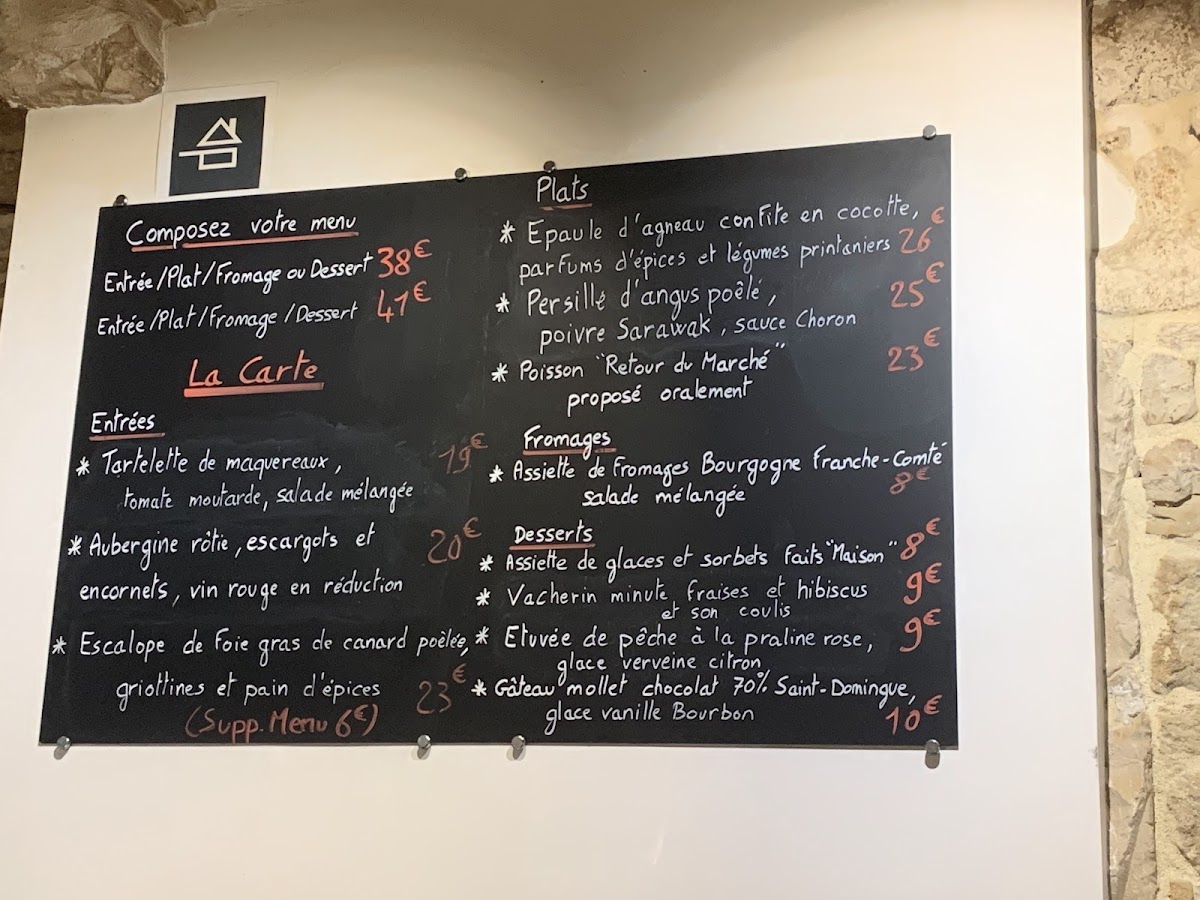 Composez votre menu
Entrée/Plat/Fromage ou Dessert 38€
Entrée/Plat/Fromage/Dessert 41€
La Carte
Entrées
* Tartelette de maquereaux, 19€
tomate moutarde, salade mélangée
* Aubergine rôtie, escargots et 20€
encornets, vin rouge en réduction
* Escalope de foie gras de canard poêlée,
griottines et pain d'épices 23€
(Supp. Menu 6€)
Plats
* Epaule d'agneau confite en cocotte,
parfums d'épices et légumes printaniers 26€
* Persillé d'angus poêlé, 25€
poivre Sarawak, sauce Choron
* Poisson "Retour du Marché" 23€
proposé oralement
Fromages
* Assiette de Fromages Bourgogne Franche-Comté
salade mélangée 8€
Desserts
* Assiette de glaces et sorbets Faits "Maison" 8€
* Vacherin minute fraises et hibiscus 9€
et son coulis
* Etuvée de pêche à la praline rose, 9€
glace verveine citron
* Gâteau mollet chocolat 70% Saint-Domingue,
glace vanille Bourbon 10€